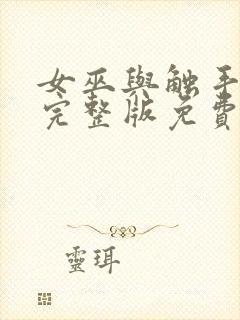 女巫與触手
完整版免費
靈珥